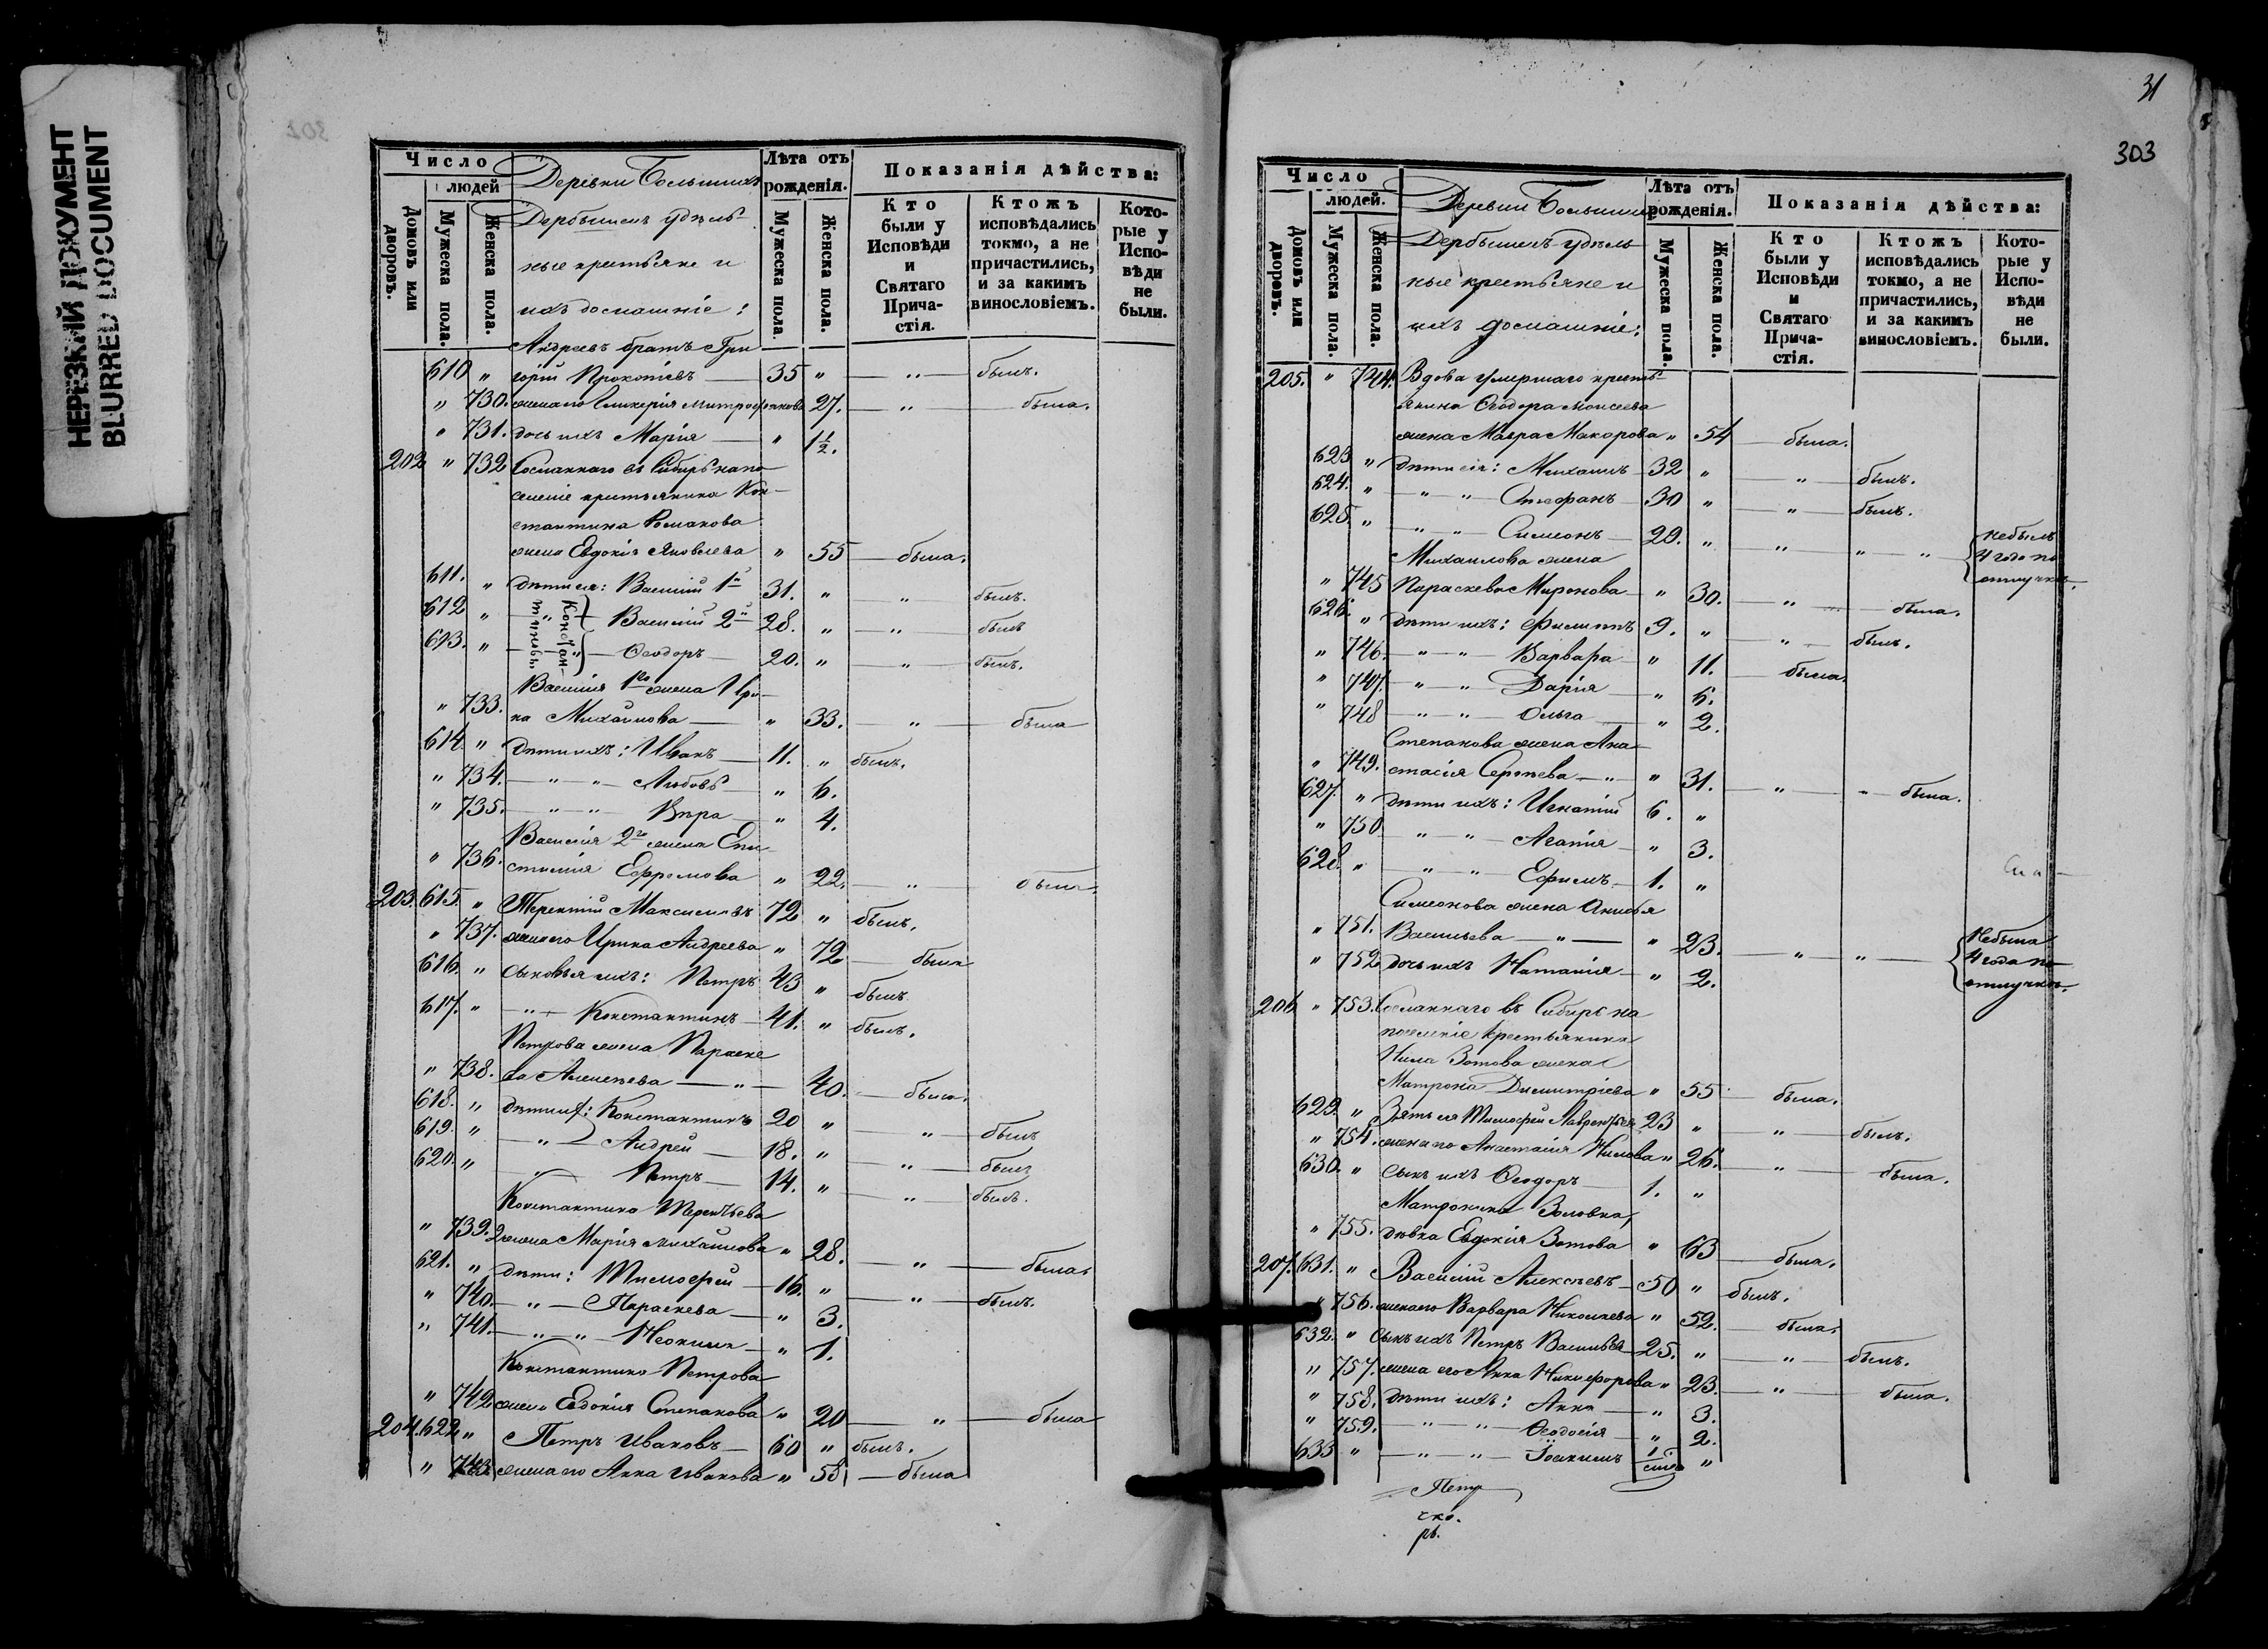 НЕРЕЗКИЙ ДОКУМЕНТ
BLURRED DOCUMENT
Число
людей
Домовъ или дворовъ.
Мужеска пола.
Женска пола.
Деревни Большихъ
Дербышекъ удѣль-
ные крестьяне и
ихъ домашніе:
Лѣта отъ рожденія.
Мужеска пола.
Женска пола.
Показанія дѣйства:
Кто были у Исповѣди и Святаго Прича-стія.
Ктожъ исповѣдались токмо, а не причастились, и за какимъ винословіемъ.
Кото-рые у Испо-вѣди не были.
Андреевъ братъ Гри
610 " горій Прокопіевъ — 35 " — " — былъ.
" 730. жена его Гликерія Митрофанова 27. — " — была.
" 731. дочь ихъ Марія — " 1½.
202 " 732 Сосланнаго въ Сибирь на по-
селеніе крестьянина Кон-
стантина Романова
жена Евдокія Яковлева " 55 — была.
611. " дѣти ея: Василій 1й 31. " — " — былъ.
612 " Константиновы. Василій 2й 28. " — " — былъ
613. " — Ѳеодоръ — 20. " — " — былъ.
Василія 1го жена Ири-
" 733. на Михайлова — " 33. — " — была
614. " дѣти ихъ: Иванъ — 11. " былъ.
" 734. — " — " — Любовь — " 6.
" 735. — " — " — Вѣра — " 4.
Василія 2го жена Епи-
" 736. стимія Ефремова " 22. — " — была.
203. 615. " Терентій Максимовъ 72 " былъ.
" 737. жена его Ирина Андреева " 72 — была
616. " сыновья ихъ: Петръ 43 " былъ
617. " — " — Константинъ — 41. " былъ.
Петрова жена Параске
" 738. ва Алексѣева — " — 40. — была.
618. " дѣти их: Константинъ 20 " — " — былъ
619. " — " — Андрей — 18. " — " — былъ
620. " — " — Петръ — 14. " — " — былъ.
Константина Терентьева
" 739. 2 жена Марія Михайлова " 28. — " — была.
621. " дѣти: Тимоѳей — 16. " — " — былъ.
" 740. — " — Параскева — " 3.
" 741. — " — " — Неонила — " 1.
Константина Петрова
" 742 жена Евдокія Степанова " 20 — " — была
204. 622. " Петръ Ивановъ — 60 " былъ.
" 743. жена его Анна Иванова " 55 — была
31
303
Число
людей.
Домовъ или дворовъ.
Мужеска пола.
Женска пола.
Деревни Большихъ
Дербышекъ удѣль-
ные крестьяне и
ихъ домашніе:
Лѣта отъ рожденія.
Мужеска пола.
Женска пола.
Показанія дѣйства:
Кто были у Исповѣди и Святаго Прича-стія.
Ктожъ исповѣдались токмо, а не причастились, и за какимъ винословіемъ.
Кото-рые у Испо-вѣди не были.
205. " 744. Вдова умершаго кресть-
янина Ѳеодора Моисеева
жена Мавра Макарова " 54 — была.
623. " дѣти ея: Михаилъ — 32 " — " — былъ.
624. " — " — " — Стефанъ — 30 " — " — былъ.
625. " — " — " — Симеонъ — 29. " — " — " — " небылъ 4 года по отлучкѣ.
Михаилова жена
" 745 Параскева Миронова — " 30. — " — была.
626. " дѣти ихъ: Филиппъ 9. " — " — былъ.
" 746. — " — " — Варвара — " 11. — была.
" 747. — " — " — Дарія — " 6.
" 748 — " — " — Ольга — " 2.
Степанова жена Ана-
" 749. стасія Сергѣева — " — " 31. — " — " — была.
627. " дѣти ихъ: Игнатій 6. "
" 750 — " — " — Агапія — " 3.
628. " — " — " — Ефимъ — 1. "
Симеонова жена
" 751. Васильева — " — " 23. — " — " — Небыла 4 года по отлучкѣ.
" 752 дочь ихъ Наталія — " 2.
206 " 753. Сосланнаго въ Сибирь на
поселеніе крестьянина
Нила Зотова жена
Матрона Димитріева " 55 — была.
629. " Зять ея Тимоѳей Лаврентьев 23 " — " — былъ.
" 754. жена его Анастасія Нилова " 26. — " — была.
630. " сынъ ихъ Ѳеодоръ — 1. "
Матронина Золовка,
" 755. дѣвка Евдокія Зотова " 63 — была.
207. 631. " Василій Алексѣевъ — 50 " былъ.
" 756. жена его Варвара Николаева " 52. — была.
632. " Сынъ ихъ Петръ Васильев 25. " — " — былъ.
" 757. жена его Анна Никифорова " 23. — " — была.
" 758. дѣти ихъ: Анна — " 3.
" 759. — " — " — Ѳеодосія — " 2.
633 " — " — " — Іоакимъ 1 "